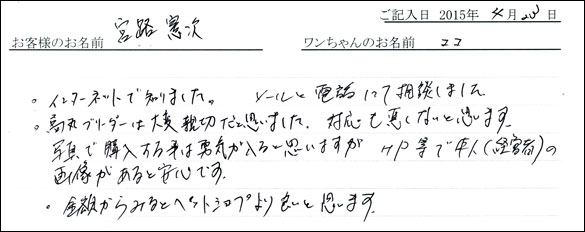 ご記入日 2015年 4月20日
お客様のお名前 宮路憲次 ワンちゃんのお名前 ココ
。インターネットで知りました。 メールと電話にて相談しました
。高丸ブリーダーは大変親切だと思いました。対応も悪くないと思います。
写真で購入する事は勇気が入ると思いますが HP等で本人(経営者)の
画像があると安心です。
。金額からみるとペットショップより良いと思います。